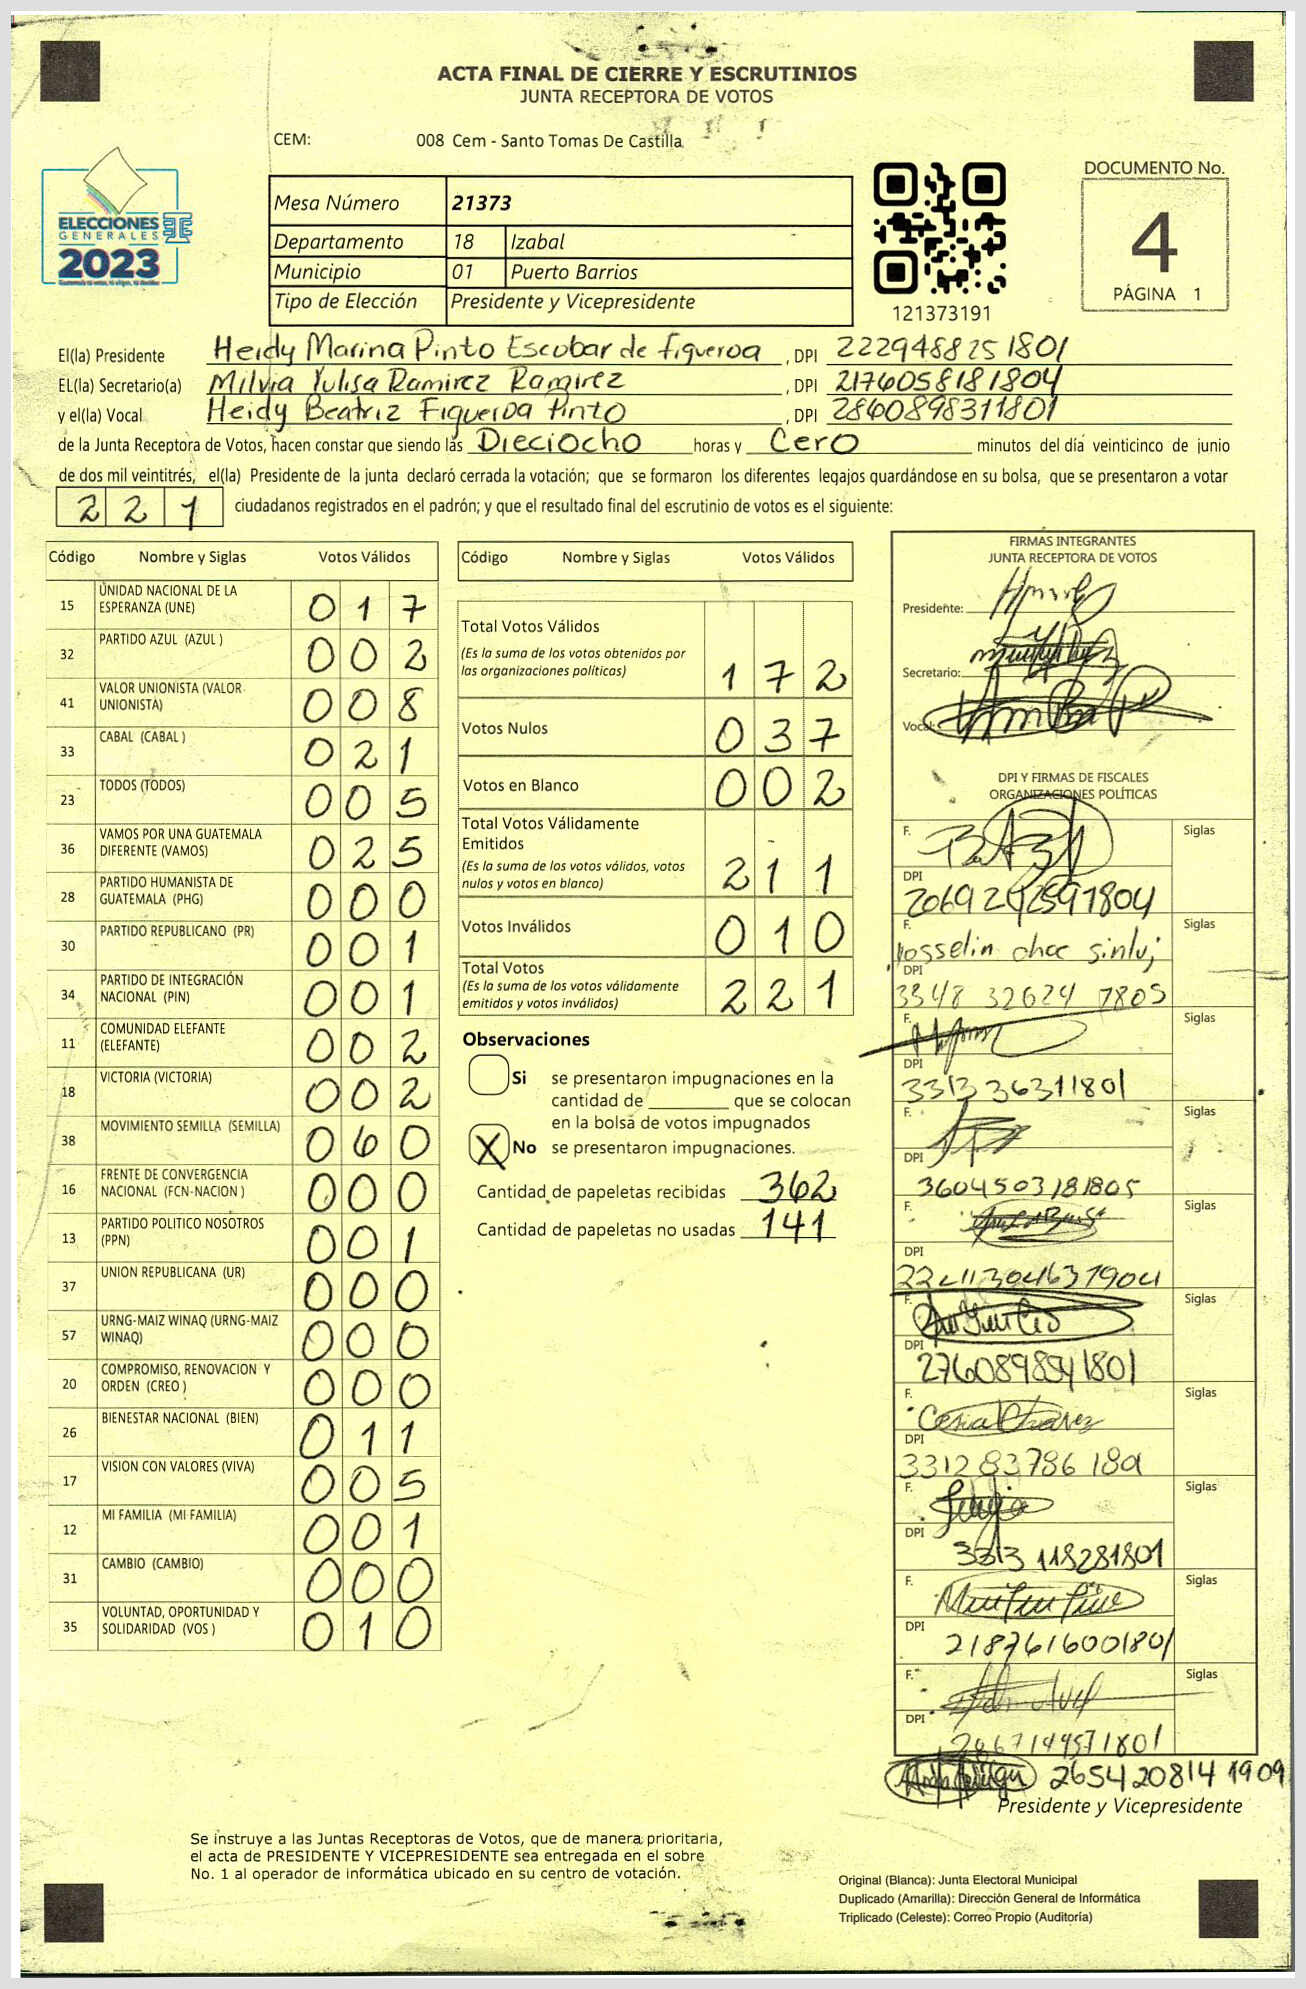 ACTA FINAL DE CIERRE Y ESCRUTINIOS
JUNTA RECEPTORA DE VOTOS
CEM: 008 Cem - Santo Tomas De Castilla
ELECCIONES
GENERALES
2023
Mesa Número 21373
Departamento 18 Izabal
Municipio 01 Puerto Barrios
Tipo de Elección Presidente y Vicepresidente
121373191
DOCUMENTO No.
4
PÁGINA 1
El(la) Presidente Heidy Marina Pinto Escobar de Figueroa, DPI 2229488251801
EL(la) Secretario(a) Milvia Yulisa Ramirez Ramirez, DPI 2176058181804
y el(la) Vocal Heidy Beatriz Figueroa Pinto, DPI 2860898311801
de la Junta Receptora de Votos, hacen constar que siendo las Dieciocho horas y Cero minutos del día veinticinco de junio
de dos mil veintitrés, el(la) Presidente de la junta declaró cerrada la votación; que se formaron los diferentes legajos guardándose en su bolsa, que se presentaron a votar
221 ciudadanos registrados en el padrón; y que el resultado final del escrutinio de votos es el siguiente:
Código Nombre y Siglas Votos Válidos
15 UNIDAD NACIONAL DE LA ESPERANZA (UNE) 017
32 PARTIDO AZUL (AZUL ) 002
41 VALOR UNIONISTA (VALOR UNIONISTA) 008
33 CABAL (CABAL ) 021
23 TODOS (TODOS) 005
36 VAMOS POR UNA GUATEMALA DIFERENTE (VAMOS) 025
28 PARTIDO HUMANISTA DE GUATEMALA (PHG) 000
30 PARTIDO REPUBLICANO (PR) 001
34 PARTIDO DE INTEGRACIÓN NACIONAL (PIN) 001
11 COMUNIDAD ELEFANTE (ELEFANTE) 002
18 VICTORIA (VICTORIA) 002
38 MOVIMIENTO SEMILLA (SEMILLA) 060
16 FRENTE DE CONVERGENCIA NACIONAL (FCN-NACION ) 000
13 PARTIDO POLITICO NOSOTROS (PPN) 001
37 UNION REPUBLICANA (UR) 000
57 URNG-MAIZ WINAQ (URNG-MAIZ WINAQ) 000
20 COMPROMISO, RENOVACION Y ORDEN (CREO ) 000
26 BIENESTAR NACIONAL (BIEN) 011
17 VISION CON VALORES (VIVA) 005
12 MI FAMILIA (MI FAMILIA) 001
31 CAMBIO (CAMBIO) 000
35 VOLUNTAD, OPORTUNIDAD Y SOLIDARIDAD (VOS ) 010
Código Nombre y Siglas Votos Válidos
Total Votos Válidos
(Es la suma de los votos obtenidos por
las organizaciones políticas) 172
Votos Nulos 037
Votos en Blanco 002
Total Votos Válidamente
Emitidos
(Es la suma de los votos válidos, votos
nulos y votos en blanco) 211
Votos Inválidos 010
Total Votos
(Es la suma de los votos válidamente
emitidos y votos inválidos) 221
Observaciones
Si se presentaron impugnaciones en la
cantidad de ________ que se colocan
en la bolsa de votos impugnados
X No se presentaron impugnaciones.
Cantidad de papeletas recibidas 362
Cantidad de papeletas no usadas 141
FIRMAS INTEGRANTES
JUNTA RECEPTORA DE VOTOS
Presidente:
Secretario:
Vocal:
DPI Y FIRMAS DE FISCALES
ORGANIZACIONES POLÍTICAS
F. Siglas
DPI
F. Siglas
DPI
3348 32624 1805
F. Siglas
DPI
3313 36311801
F. Siglas
DPI
3604503181805
F. Siglas
DPI
F. Siglas
DPI
2760898941801
F. Siglas
DPI
F. Siglas
DPI
3313 118281801
F. Siglas
DPI
2187616001801
F. Siglas
DPI
2654208141909
Presidente y Vicepresidente
Se instruye a las Juntas Receptoras de Votos, que de manera prioritaria,
el acta de PRESIDENTE Y VICEPRESIDENTE sea entregada en el sobre
No. 1 al operador de informática ubicado en su centro de votación.
Original (Blanca): Junta Electoral Municipal
Duplicado (Amarilla): Dirección General de Informática
Triplicado (Celeste): Correo Propio (Auditoría)